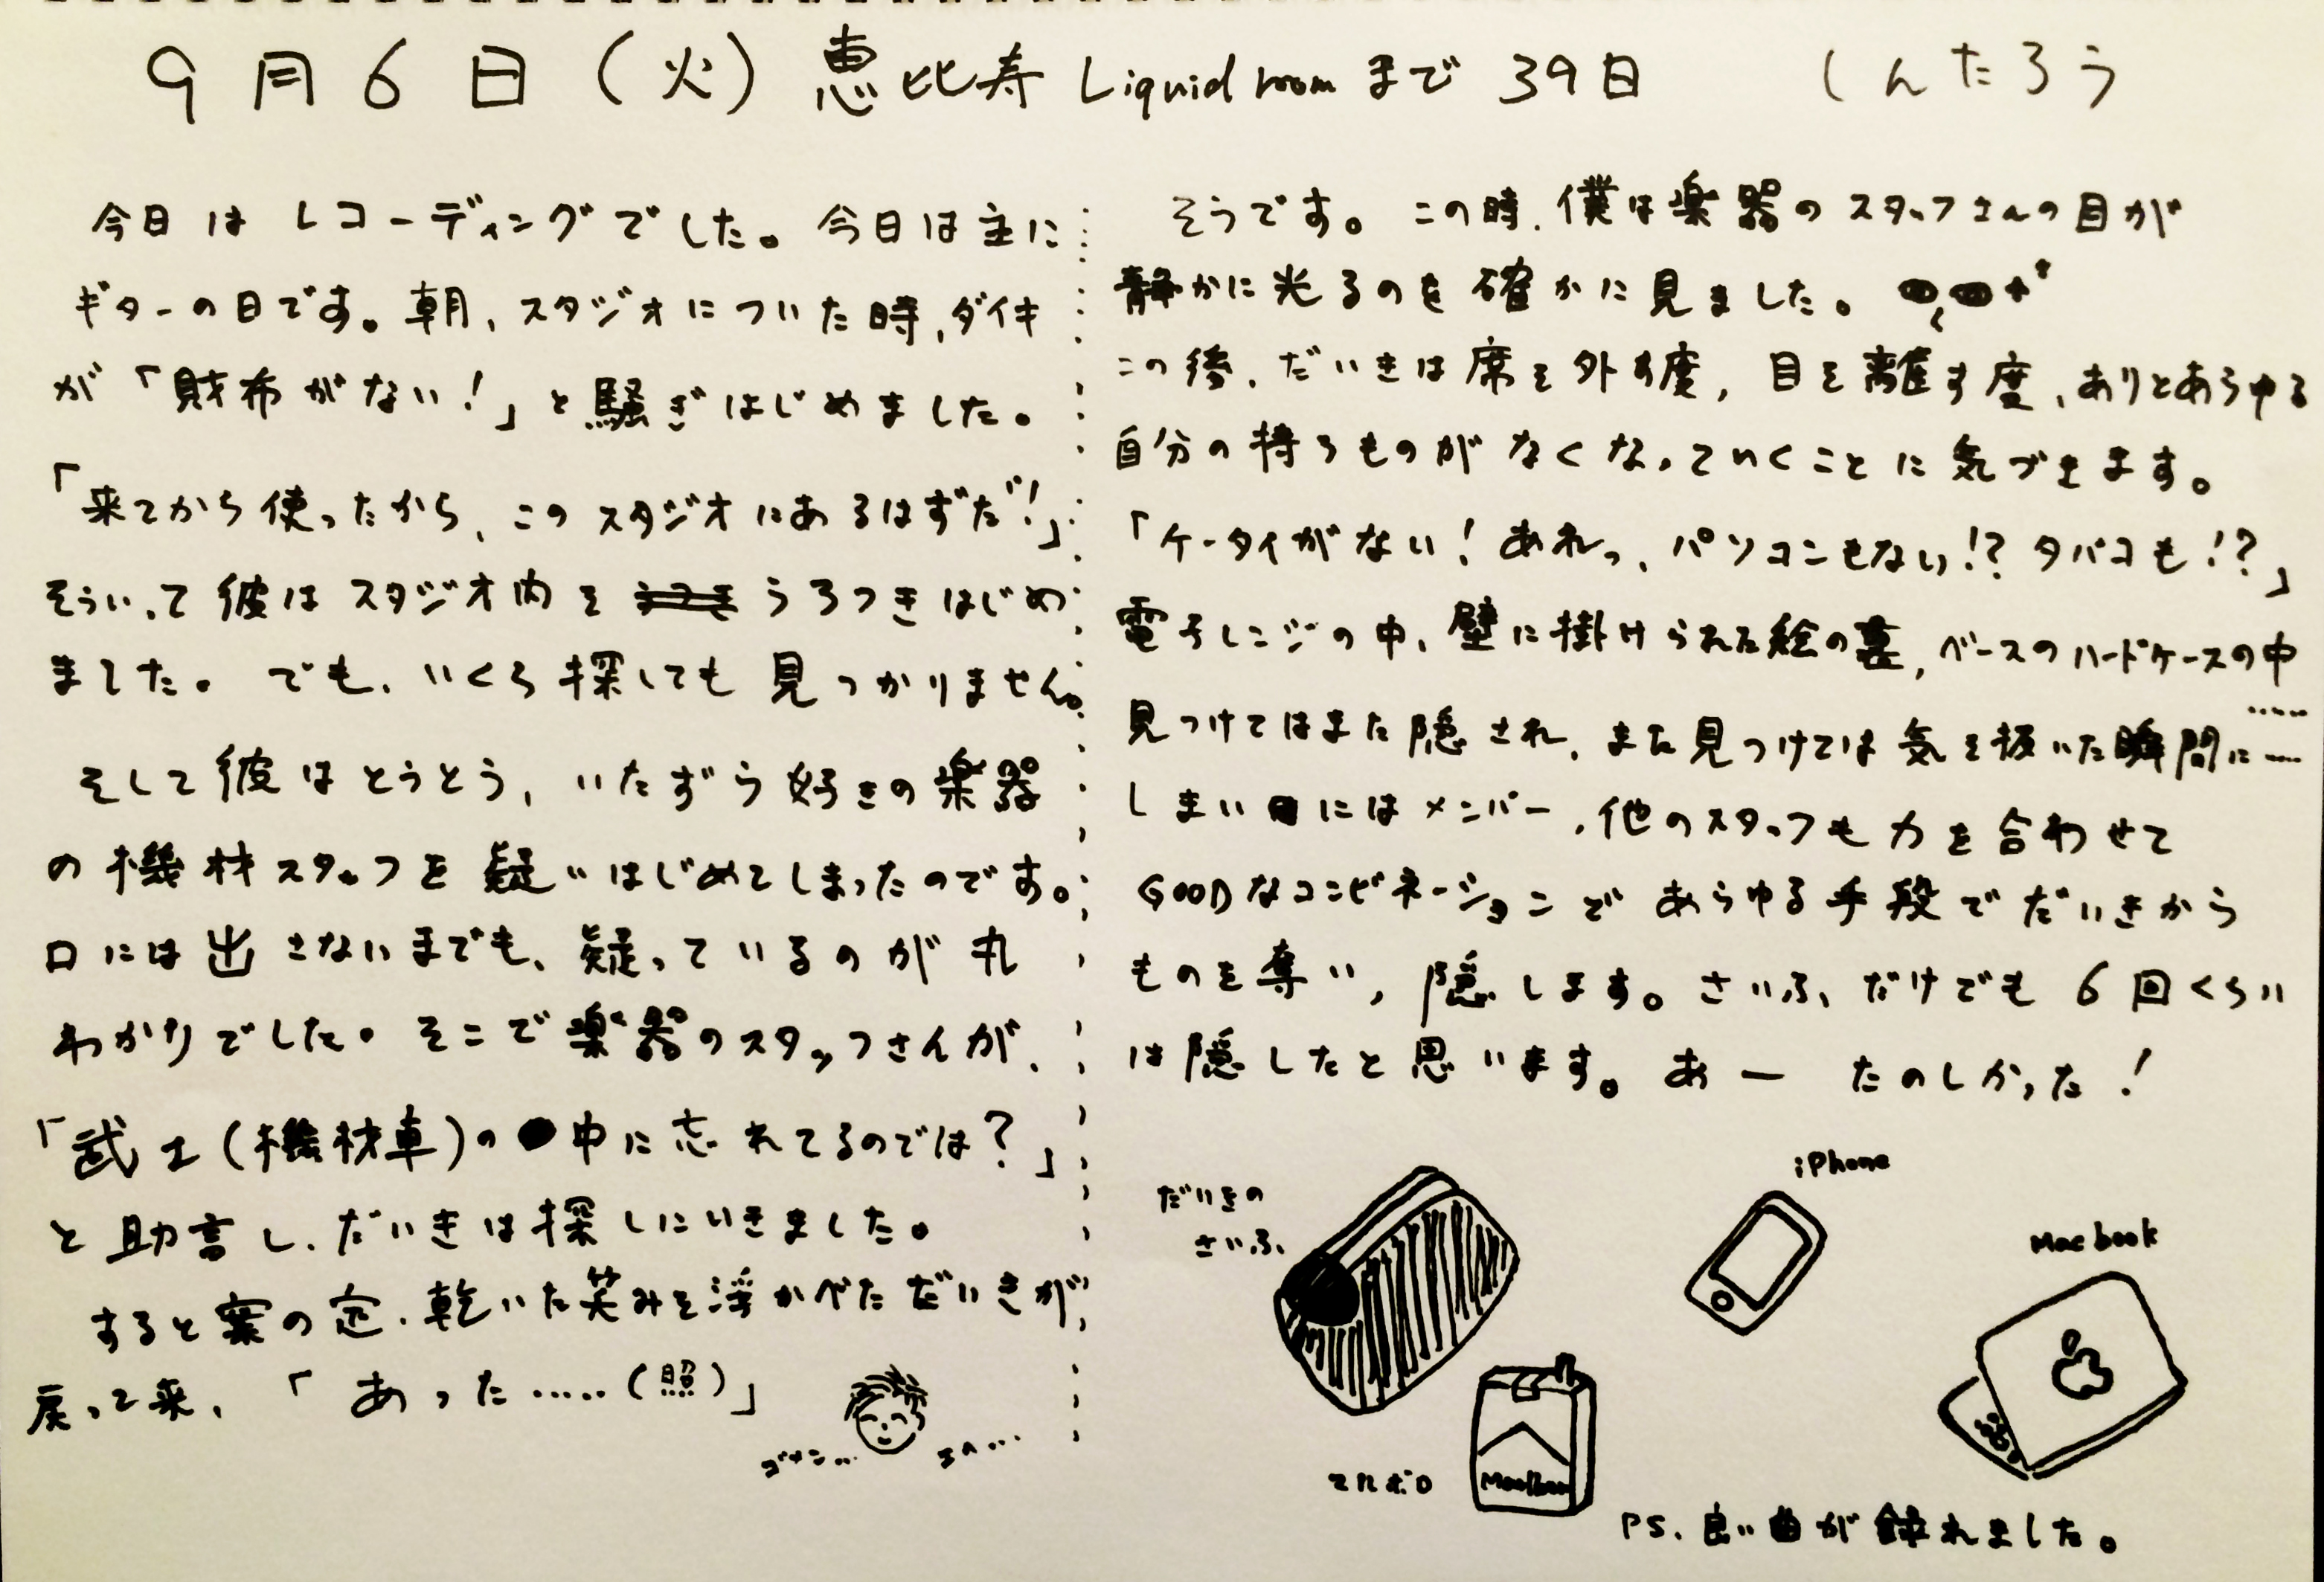 9月6日(火)恵比寿 Liquid roomまで 39日 しんたろう
今日は レコーディングでした。今日は主に
ギターの日です。朝、スタジオについた時、ダイキ
が「財布がない!」と騒ぎはじめました。
「来てから使ったから、このスタジオにあるはずだ!」
そういって彼はスタジオ内を うろつきはじめ
ました。でも、いくら探しても見つかりません。
そして彼はとうとう、いたずら好きの楽器
の機材スタッフを疑いはじめてしまったのです。
口には出さないまでも、疑っているのが丸
わかりでした。そこで楽器のスタッフさんが、
「武士(機材車)の中に忘れてるのでは?」
と助言し、だいきは探しにいきました。
すると案の定、乾いた笑みを浮かべただいきが
戻って来、「あった.....(照)」
ゴメン...
そうです。この時、僕は楽器のスタッフさんの目が
静かに光るのを確かに見ました。
この後、だいきは席を外す度、目を離す度、ありとあらゆる
自分の持つものがなくなっていくことに気づきます。
「ケータイがない!あれっ、パソコンもない!?タバコも!?」
電子レンジの中、壁に掛けられた絵の裏、ベースのハードケースの中
.....
見つけてはまた隠され、また見つけては気を抜いた瞬間に....
しまいにはメンバー、他のスタッフも力を合わせて
GOODなコンビネーションであらゆる手段でだいきから
ものを奪い、隠します。さいふだけでも6回くらい
は隠したと思います。あー たのしかった!
だいきの
さいふ
iPhone
Mac book
マルボロ
PS. 良い曲が録れました。